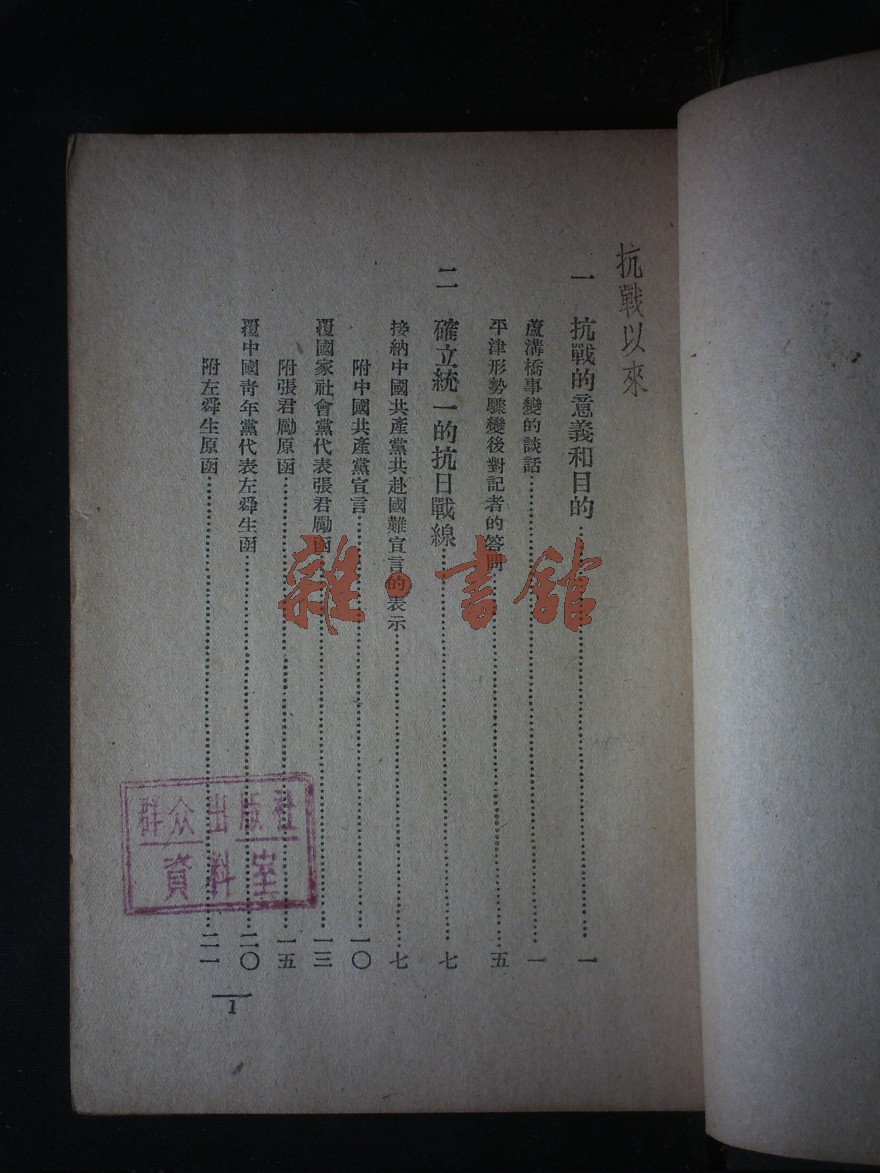 抗戰以來
一 抗戰的意義和目的……一
蘆溝橋事變的談話……一
平津形勢驟變後對記者的答問……五
二 確立統一的抗日戰線……七
接納中國共產黨共赴國難宣言的表示……七
附中國共產黨宣言……一〇
覆國家社會黨代表張君勱函……一三
附張君勱原函……一五
覆中國青年黨代表左舜生函……二〇
附左舜生原函……二一
1
群众出版社
資料室
雜·書館